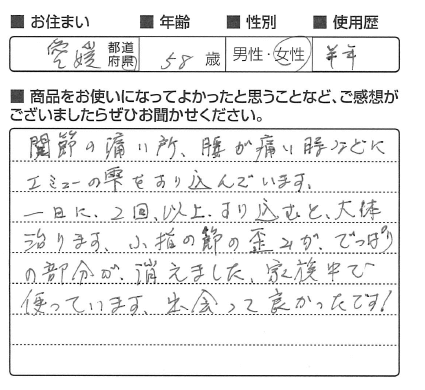 ■ お住まい ■ 年齢 ■ 性別 ■ 使用歴
愛媛 都道府県 58 歳 男性・女性 半年
■ 商品をお使いになってよかったと思うことなど、ご感想が
ございましたらぜひお聞かせください。
関節の痛い所、腰が痛い時などに
エミューの雫をすり込んでいます。
一日に、2回、以上、すり込むと、大体
治ります、小指の節の歪みが、でっぱり
の部分が、消えました、家族中で
使っています、出会って良かったです!